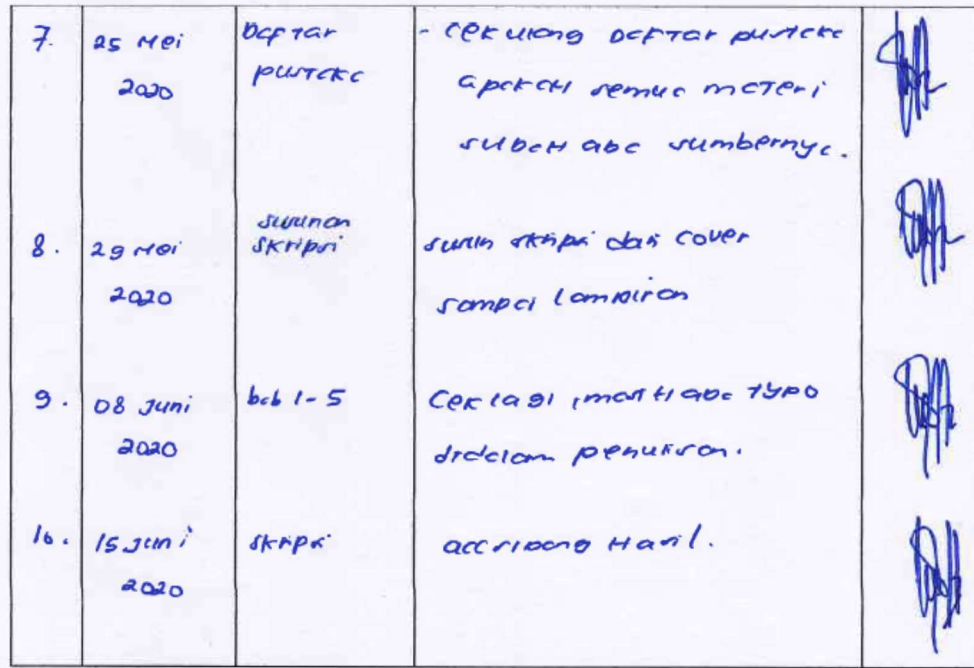 7. 25 Mei Daftar pustaka - Cek ulang Daftar pustaka
2020 apakah semua materi
sudah ada sumbernya.
8. 29 Mei susunan skripsi susun skripsi dari cover
2020 sampai lampiran
9. 08 Juni bab 1-5 Cek lagi, masih ada typo
2020 didalam penulisan.
10. 15 Juni skripsi acc sidang Hasil.
2020